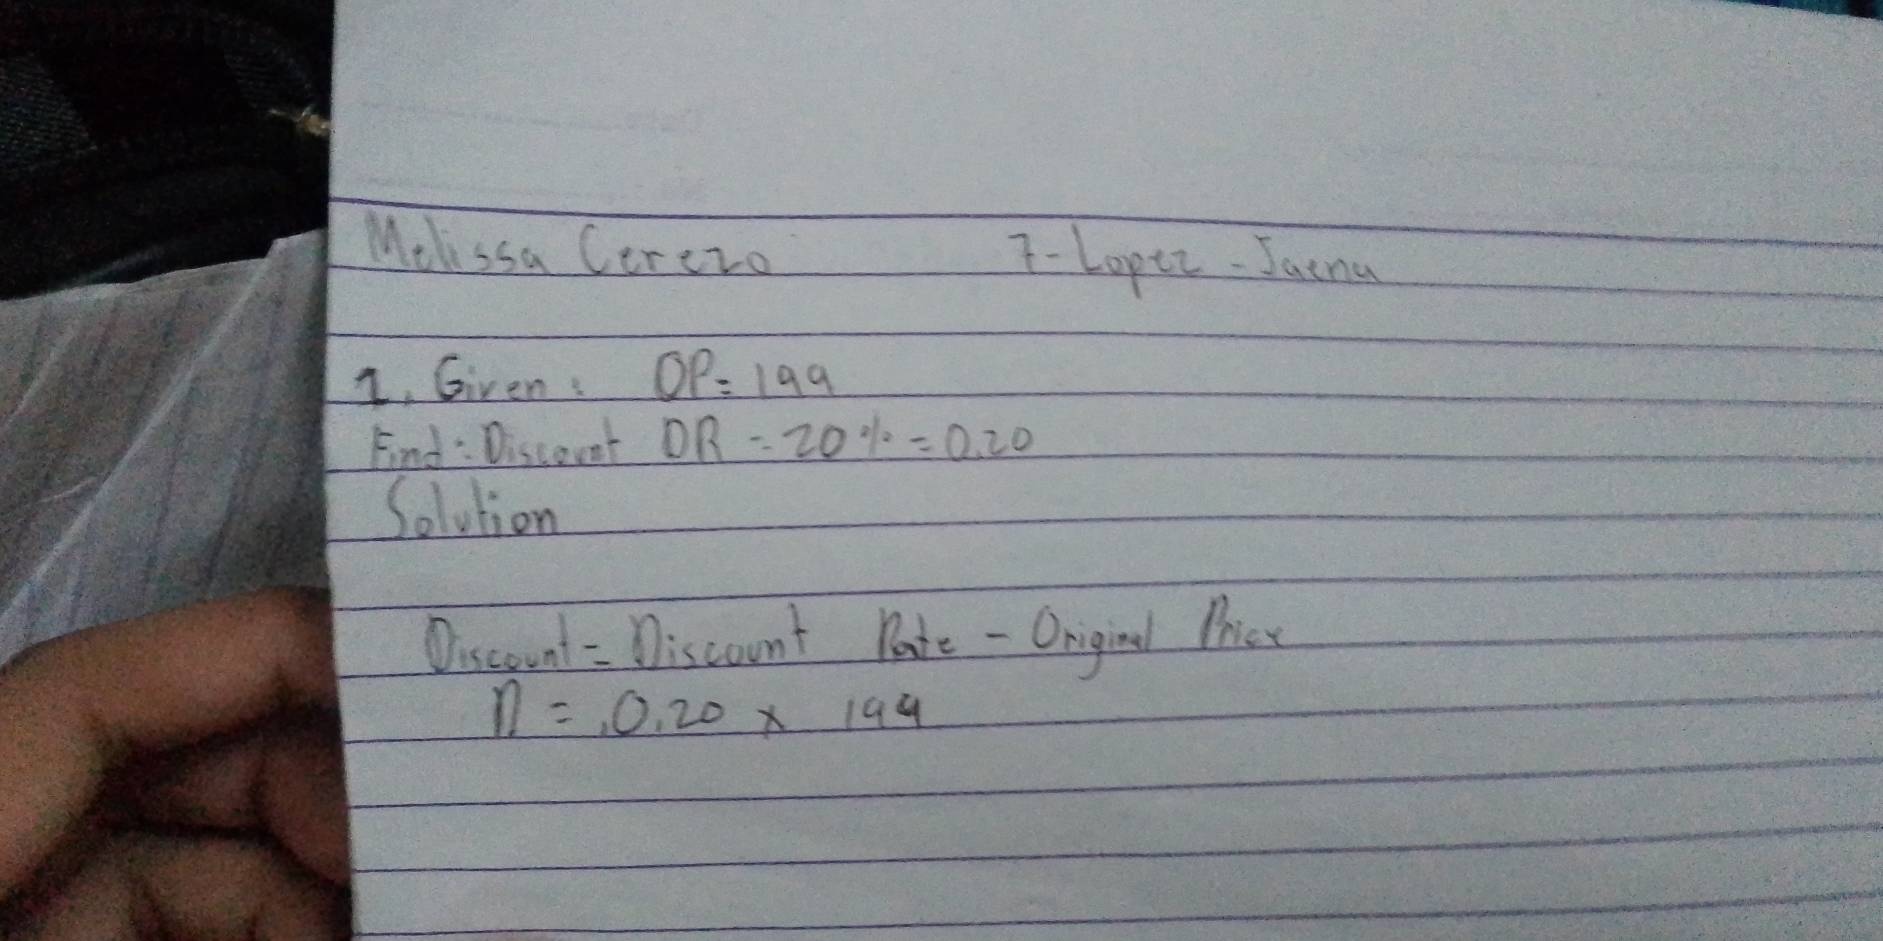 Melissa Cerezo 7-Lopez-Jaena
1. Given: OP=199
Find: Discount DR=20%=0.20
Solution
Discount=Discount Rate-Original Price
D=.0.20 x 199